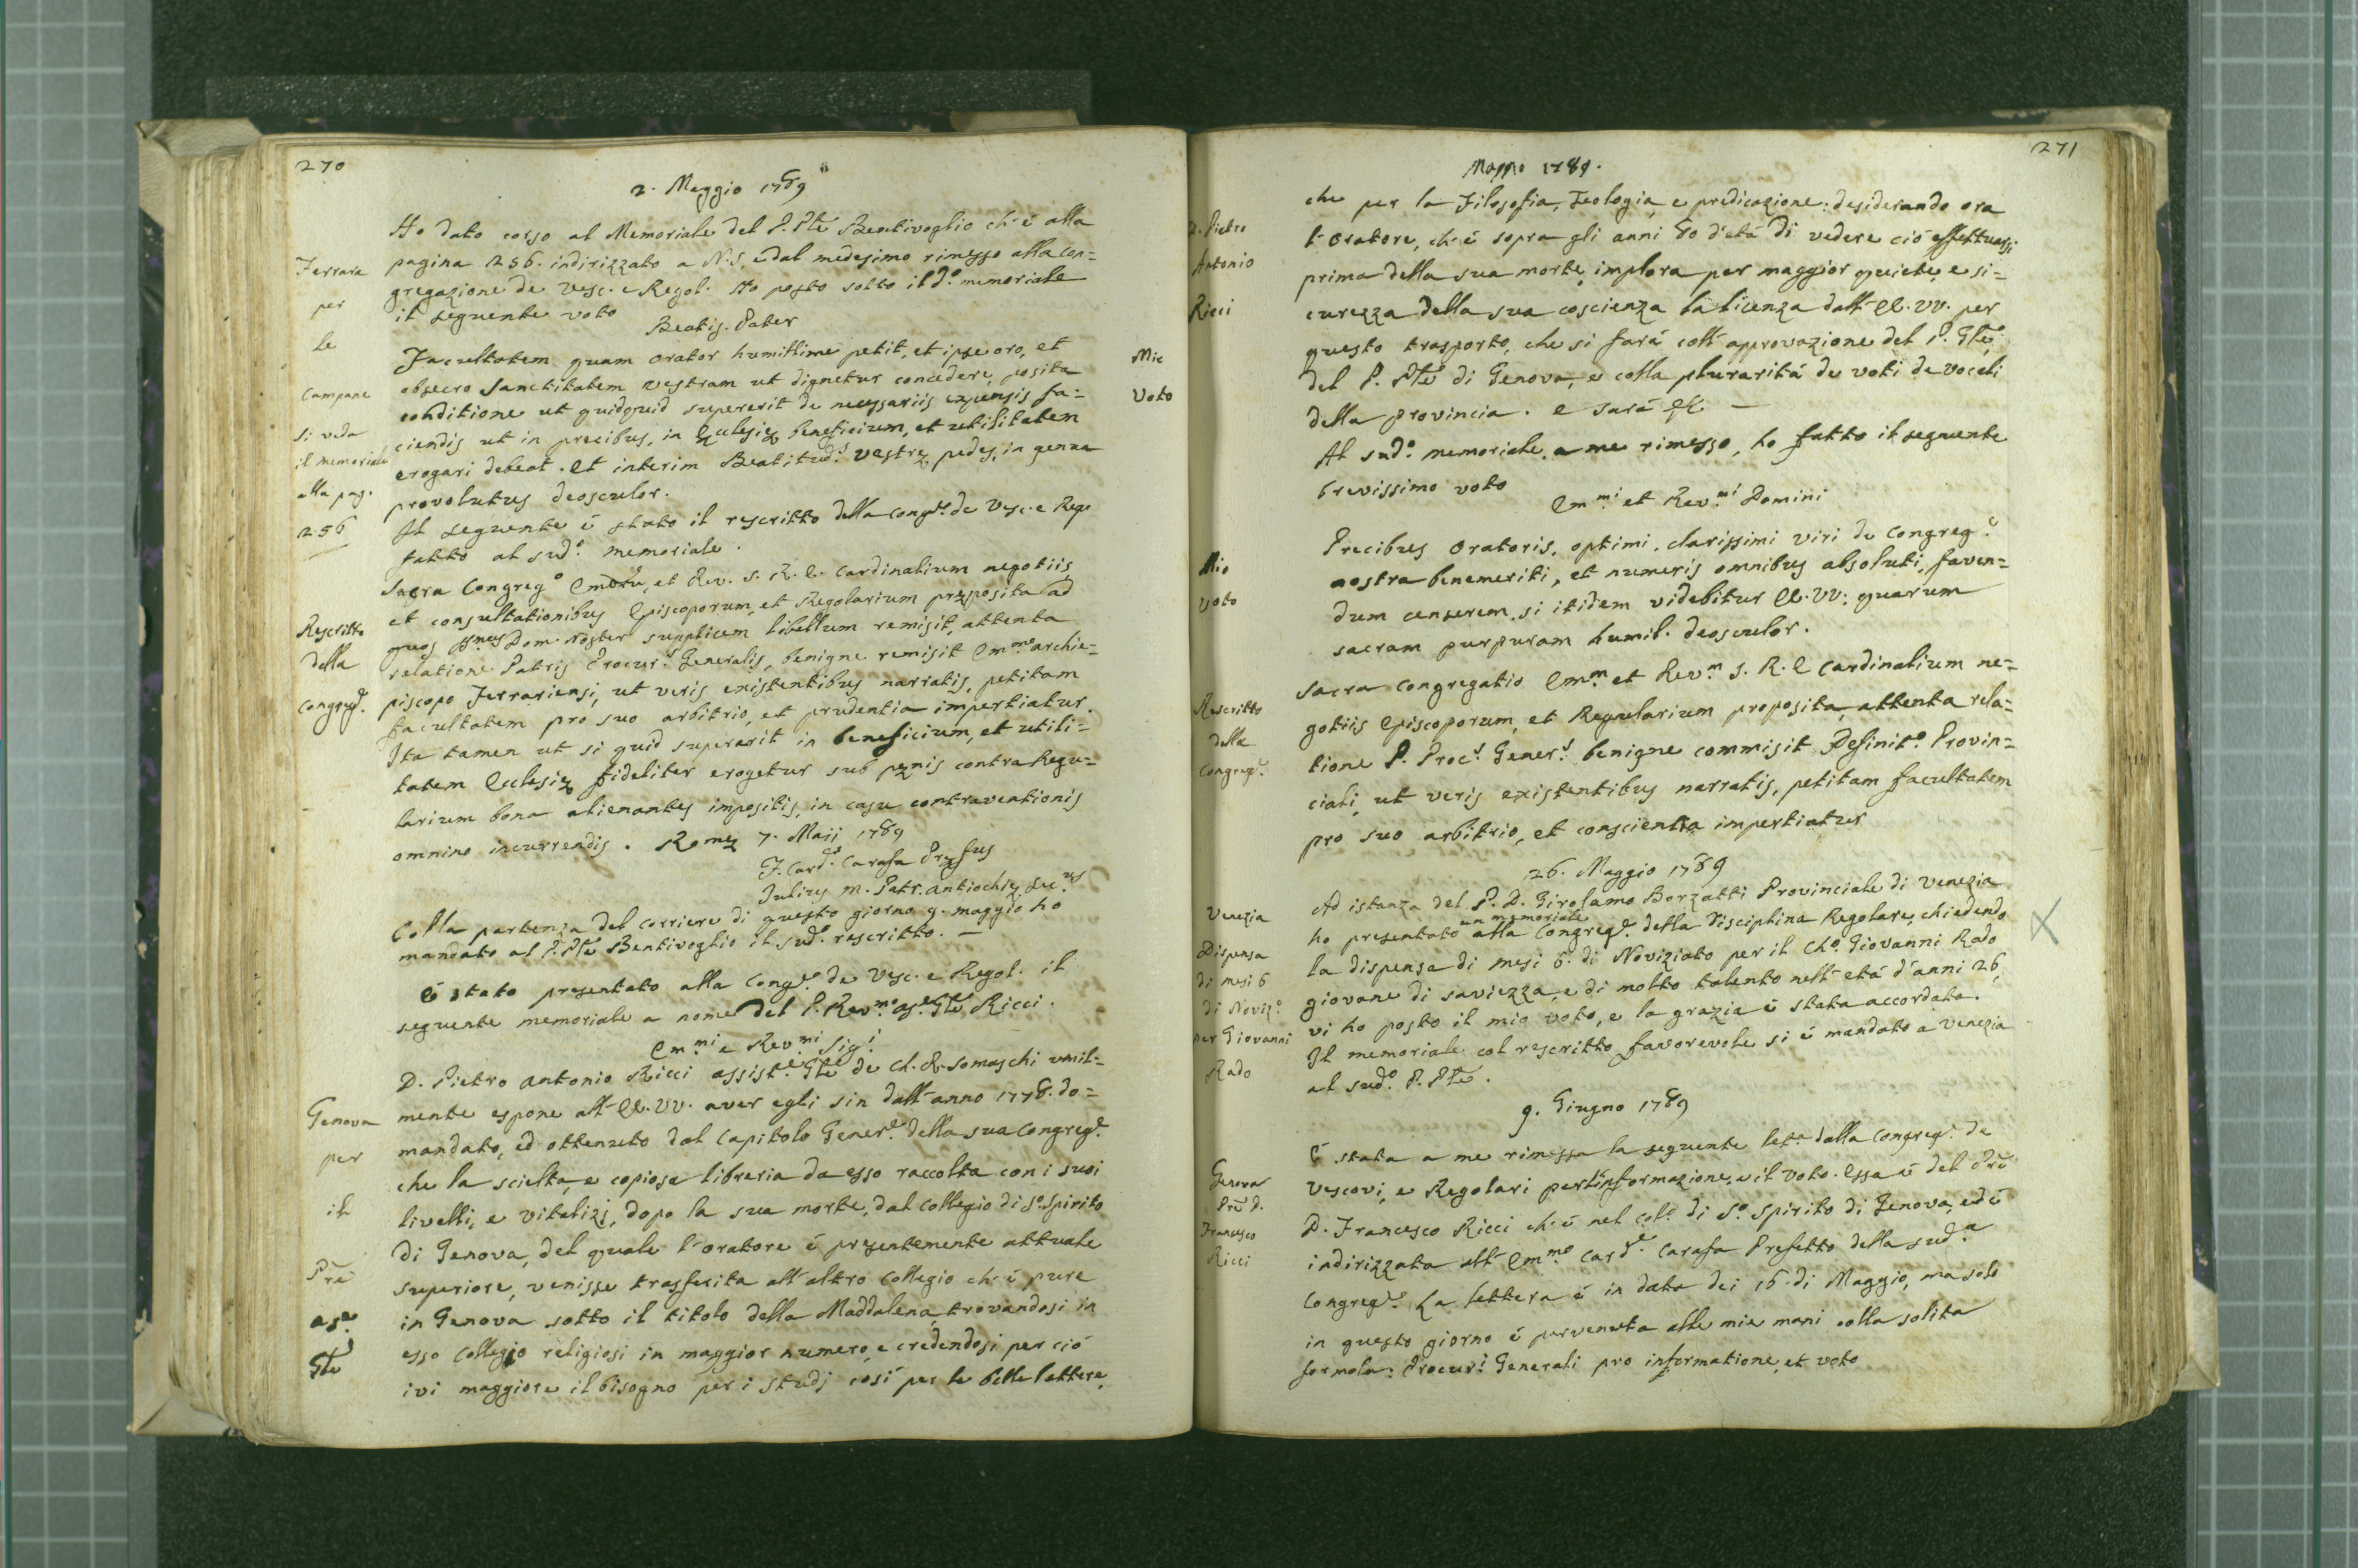 270
2. Maggio 1789
Ho dato corso al Memoriale del P. Ple Bentivoglio ch'è alla
pagina 256. indirizzato a N.S. e dal medesimo rimesso alla Con=
gregazione de Vesc. e Regol. Ho posto sotto il do. memoriale
il seguente voto
Beatis. Pater
Facultatem quam Orator humillime petit, et ipse oro, et
obsecro Sanctitatem vestram ut dignetur concedere, posita
conditione ut quidquid supererit de necessariis expensis fa=
ciendis ut in precibus, in Ecclesię beneficium, et utilitatem
erogari debeat. Et interim Beatitud.s Vestrę pedes, in genua
provolutus deosculor.
Il seguente è stato il rescritto della Cong.e de Vesc. e Rego
fatto al sud.o memoriale.
Sacra Congreg.o Emorũ, et Rev. S. R. E. Cardinalium negotiis
et consultationibus Episcoporum, et Regolarium pręposita ad
quos SSmus Dom. Noster supplicem libellum remisit, attenta
relatione Patris Procur.s Generalis, benigne remisit Emmo archie=
piscopo Ferrariensi, ut veris existentibus narratis, petitam
facultatem pro suo arbitrio, et prudentia impertiatur.
Ita tamen ut si quid superarit in beneficium, et utili=
tatem Ecclesię fideliter erogetur sub pęnis contra Regu=
larium bona alienantes impositis, in casu contraventionis
omnino incurrendis. Romę 7. Maii 1789
F. Card. Carafa Pręfus
Julius M. Patr. Antiochię Sec.us
Colla partenza del corriere di questo giorno 9. maggio ho
mandato al P. Ple Bentivoglio il sud.o rescritto. —
È stato presentato alla Cong.e de Vesc. e Regol. il
seguente memoriale a nome del P. Rev.mo as.e Gle Ricci.
Em.mi e Rev.mi Sig.i
D. Pietro Antonio Ricci assist.e Gle de Ch. R. Somaschi umil=
mente espone all' EE. VV. aver egli sin dall'anno 1778. do=
mandato, ed ottenuto dal Capitolo Gener.e della sua Congreg.e
che la scielta, e copiosa libreria da esso raccolta con i suoi
livelli, e vitalizj, dopo la sua morte, dal Collegio di S.o Spirito
di Genova, del quale l'oratore è presentemente attuale
superiore, venisse trasferita all'altro Collegio ch'è pure
in Genova sotto il titolo della Maddalena, trovandosi in
esso Collegio religiosi in maggior numero, e credendosi per ciò
ivi maggiore il bisogno per i studj così per le belle lettere,
Ferrara
per
le
Campane
si veda
il memoriale
alla pag.
256
Mio
Voto
Rescritto
della
Congreg.e
Genova
per
il
Pre
as.e
Gle
271
Maggio 1789.
che per la Filosofia, Teologia, e predicazione: desiderando ora
l'Oratore, ch'è sopra gli anni 80 d'età di vedere ciò effettuassi
prima della sua morte, implora per maggior quiete, e si=
curezza della sua coscienza la licenza dall' EE. VV. per
questo trasporto, che si farà coll'approvazione del P. Gle,
del P. Ple di Genova, e colla plurarità de voti de vocali
della provincia. e sarà
Al sud.o memoriale, a me rimesso, ho fatto il seguente
brevissimo voto
Em.mi et Rev.mi Domini
Precibus Oratoris, optimi, clarissimi viri de Congreg.e
nostra benemeriti, et numeris omnibus absoluti, faven=
dum censerem, si itidem videbitur EE. VV: quarum
sacram purpuram humil. deosculor.
Sacra Congregatio Em.m et Rev.m S. R. E Cardinalium ne=
gotiis Episcoporum, et Regularium proposita, attenta rela=
tione P. Proc.s Gener.s benigne commisit Definit.o Provin=
ciali, ut veris existentibus narratis, petitam facultatem
pro suo arbitrio, et conscientia impertiatur
26. Maggio 1789
Ad istanza del P. D. Girolamo Borzatti Provinciale di Venezia
un memoriale
ho presentato alla Congreg.e della Disciplina Regolare, chiedendo
la dispensa di mesi 6. di Noviziato per il Cho. Giovanni Rado
giovane di saviezza, e di molto talento nell'età d'anni 26,
vi ho posto il mio voto, e la grazia è stata accordata.
Il memoriale col rescritto favorevole si è mandato a Venezia
al sud.o P. Ple.
9. Giugno 1789
È stata a me rimessa la seguente let.a dalla Congreg.e de
Vescovi, e Regolari per l'informazione, e il voto. Essa è del Pre
D. Francesco Ricci ch'è nel Col.o di S.o Spirito di Genova, ed è
indirizzata all' Em.mo Card.e Carafa Prefetto della sud.a
Congreg.e La lettera è in data dei 16. di Maggio, ma solo
in questo giorno è pervenuta alle mie mani colla solita
formola: Procur.i Generali pro informatione, et voto
D. Pietro
Antonio
Ricci
Mio
voto
Rescritto
della
Congreg.e
Venezia
Dispensa
di mesi 6
di Noviz.o
per Giovanni
Rado
Genova
Pre D.
Francesco
Ricci
X